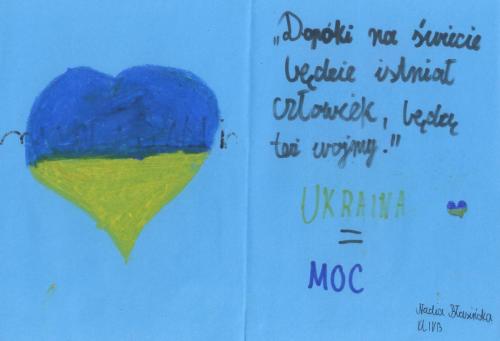 „Dopóki na świecie
będzie istniał
człowiek, będą
też wojny."
UKRAINA
=
MOC
Nadia Błasińska
kl IVB